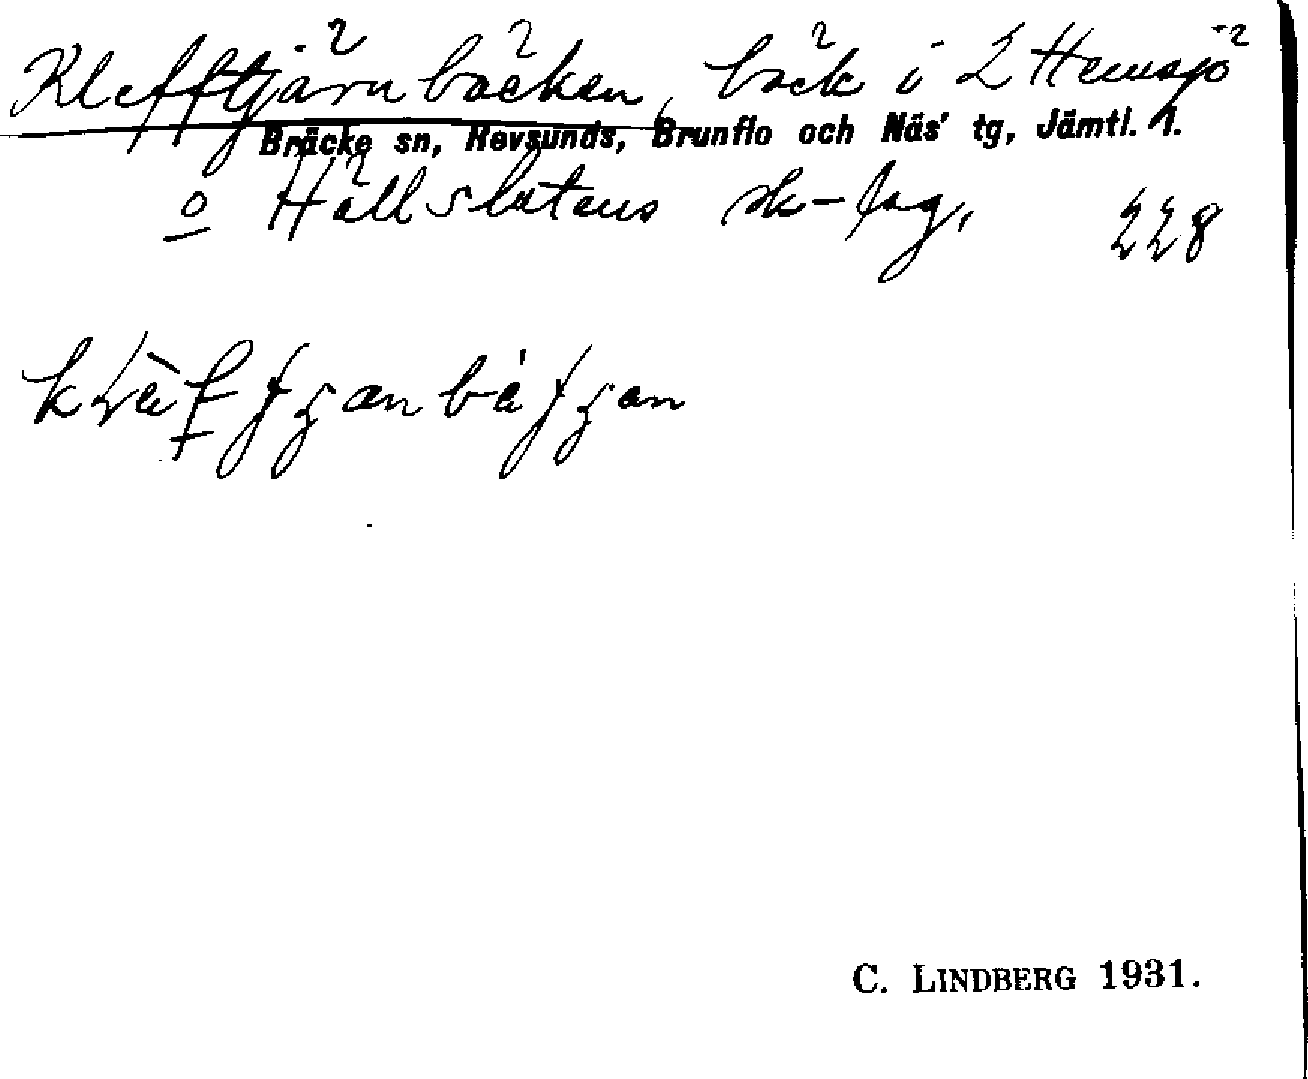 Klefftjärnbäcken, bäck i L Hemsjö
Bräcke sn, Revsunds, Brunflo och Näs' tg, Jämtl. l.
o Hällslåtens sk-lag, 228
C. LINDBERG 1931.